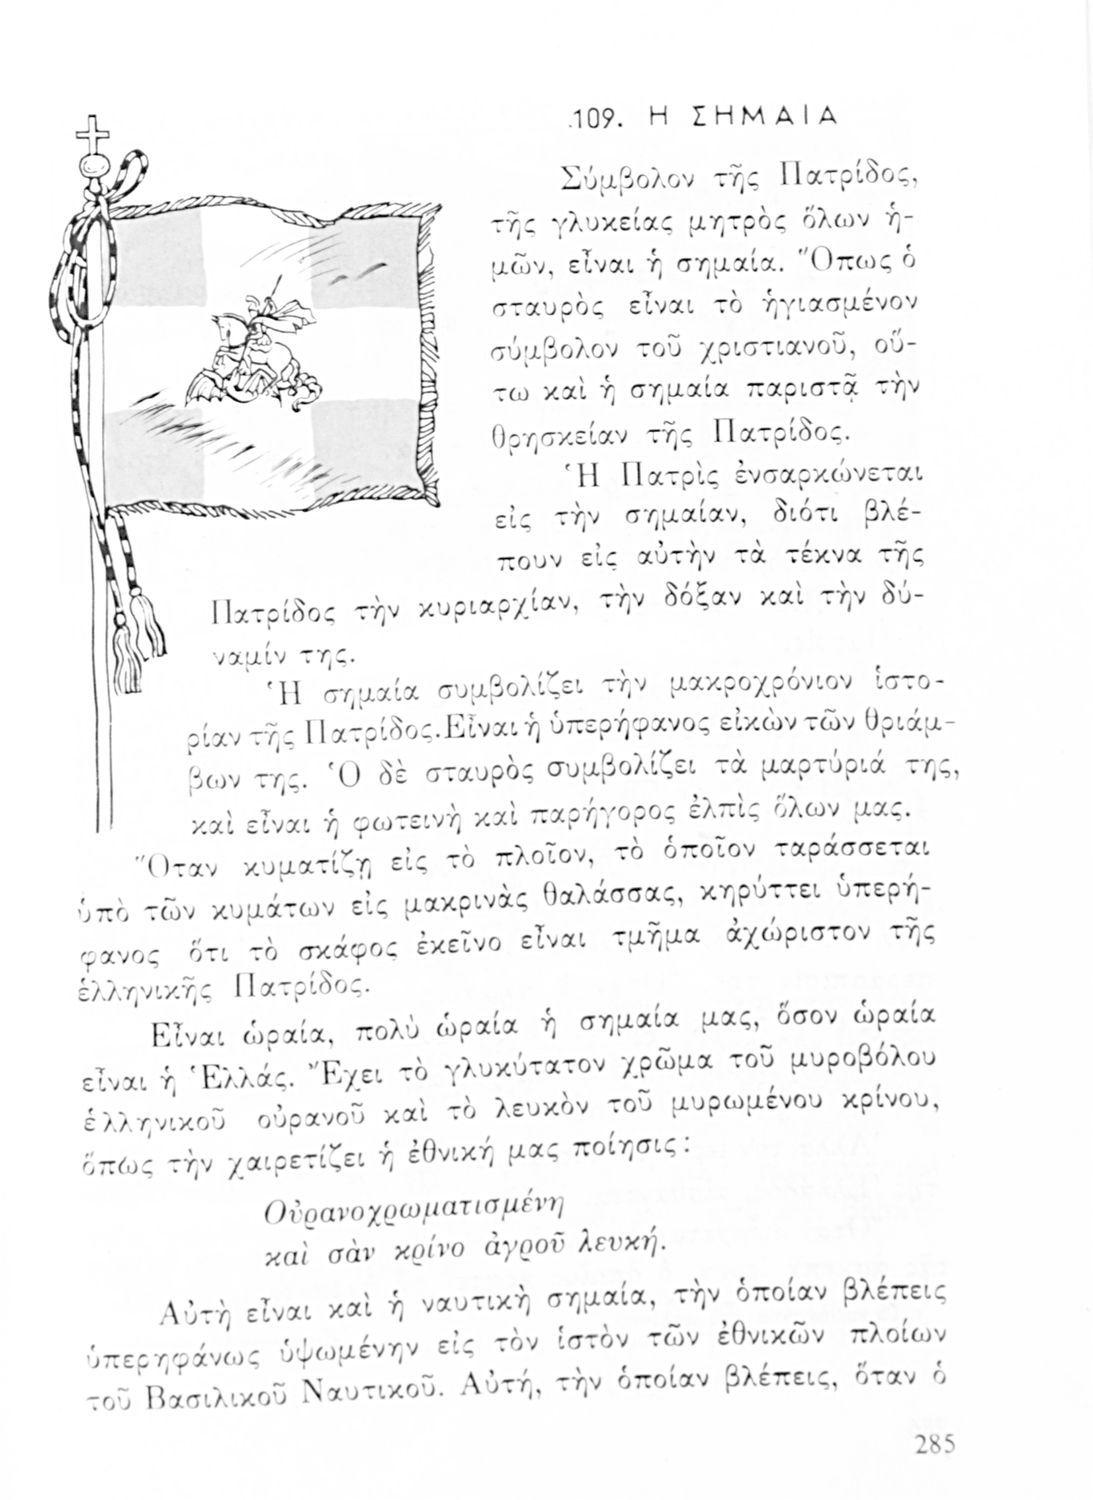 109. Η ΣΗΜΑΙΑ
Σύμβολον τῆς Πατρίδος,
τῆς γλυκείας μητρὸς ὅλων ἡ-
μῶν, εἶναι ἡ σημαία. Ὅπως ὁ
σταυρὸς εἶναι τὸ ἡγιασμένον
σύμβολον τοῦ χριστιανοῦ, οὕ-
τω καὶ ἡ σημαία παριστᾷ τὴν
θρησκείαν τῆς Πατρίδος.
Ἡ Πατρὶς ἐνσαρκώνεται
εἰς τὴν σημαίαν, διότι βλέ-
πουν εἰς αὐτὴν τὰ τέκνα τῆς
Πατρίδος τὴν κυριαρχίαν, τὴν δόξαν καὶ τὴν δύ-
ναμίν της.
Ἡ σημαία συμβολίζει τὴν μακροχρόνιον ἱστο-
ρίαν τῆς Πατρίδος. Εἶναι ἡ ὑπερήφανος εἰκὼν τῶν θριάμ-
βων της. Ὁ δὲ σταυρὸς συμβολίζει τὰ μαρτύριά της,
καὶ εἶναι ἡ φωτεινὴ καὶ παρήγορος ἐλπὶς ὅλων μας.
Ὅταν κυματίζῃ εἰς τὸ πλοῖον, τὸ ὁποῖον ταράσσεται
ὑπὸ τῶν κυμάτων εἰς μακρινὰς θαλάσσας, κηρύττει ὑπερή-
φανος ὅτι τὸ σκάφος ἐκεῖνο εἶναι τμῆμα ἀχώριστον τῆς
ἑλληνικῆς Πατρίδος.
Εἶναι ὡραία, πολὺ ὡραία ἡ σημαία μας, ὅσον ὡραία
εἶναι ἡ Ἑλλάς. Ἔχει τὸ γλυκύτατον χρῶμα τοῦ μυροβόλου
ἑλληνικοῦ οὐρανοῦ καὶ τὸ λευκὸν τοῦ μυρωμένου κρίνου,
ὅπως τὴν χαιρετίζει ἡ ἐθνική μας ποίησις:
Οὐρανοχρωματισμένη
καὶ σὰν κρίνο ἀγροῦ λευκή.
Αὐτὴ εἶναι καὶ ἡ ναυτικὴ σημαία, τὴν ὁποίαν βλέπεις
ὑπερηφάνως ὑψωμένην εἰς τὸν ἱστὸν τῶν ἐθνικῶν πλοίων
τοῦ Βασιλικοῦ Ναυτικοῦ. Αὐτή, τὴν ὁποίαν βλέπεις, ὅταν ὁ
285